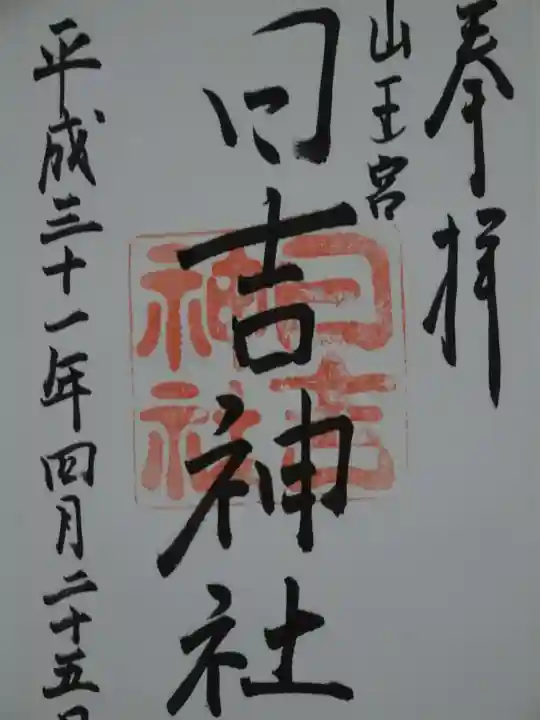 奉拝
山王宮
日吉神社
日吉
神社
平成三十一年四月二十五日